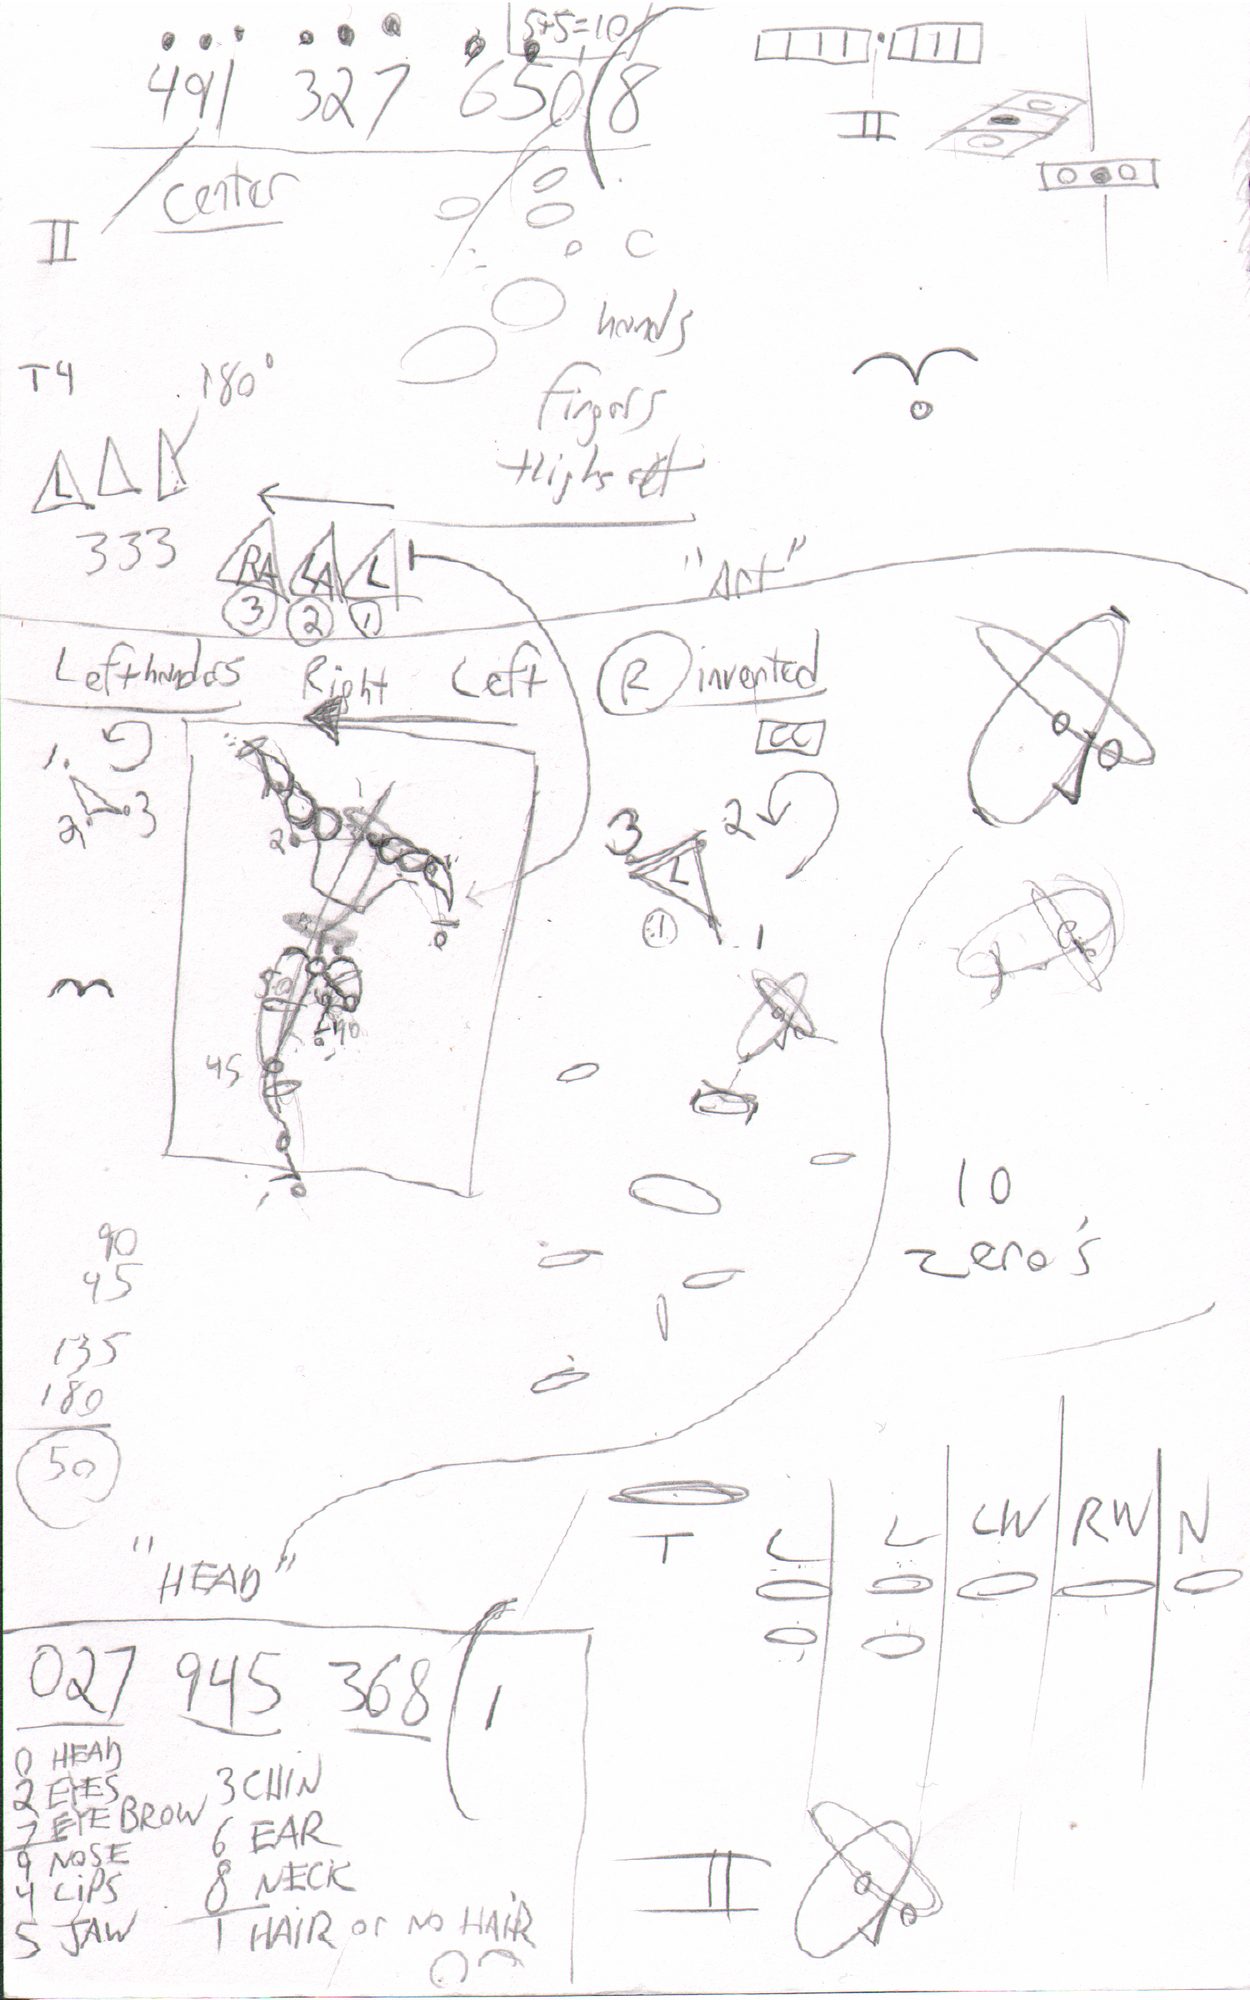 5+5=10
491 327 650(8
II
center
II
C
hands
T4
180°
fingers
thighs
L
333
RA LA L
3 2 1
"Art"
Lefthanders Right Left
R invented
CC
1.
2 3
3 2
L
1
1
2
0
50
90
45
10
zero's
90
45
135
180
50
"HEAD"
T L L LW RW N
027 945 368(1
0 HEAD
2 EYES
7 EYE BROW
9 NOSE
4 LiPS
5 JAW
3 CHIN
6 EAR
8 NECK
1 HAIR or NO HAIR
II